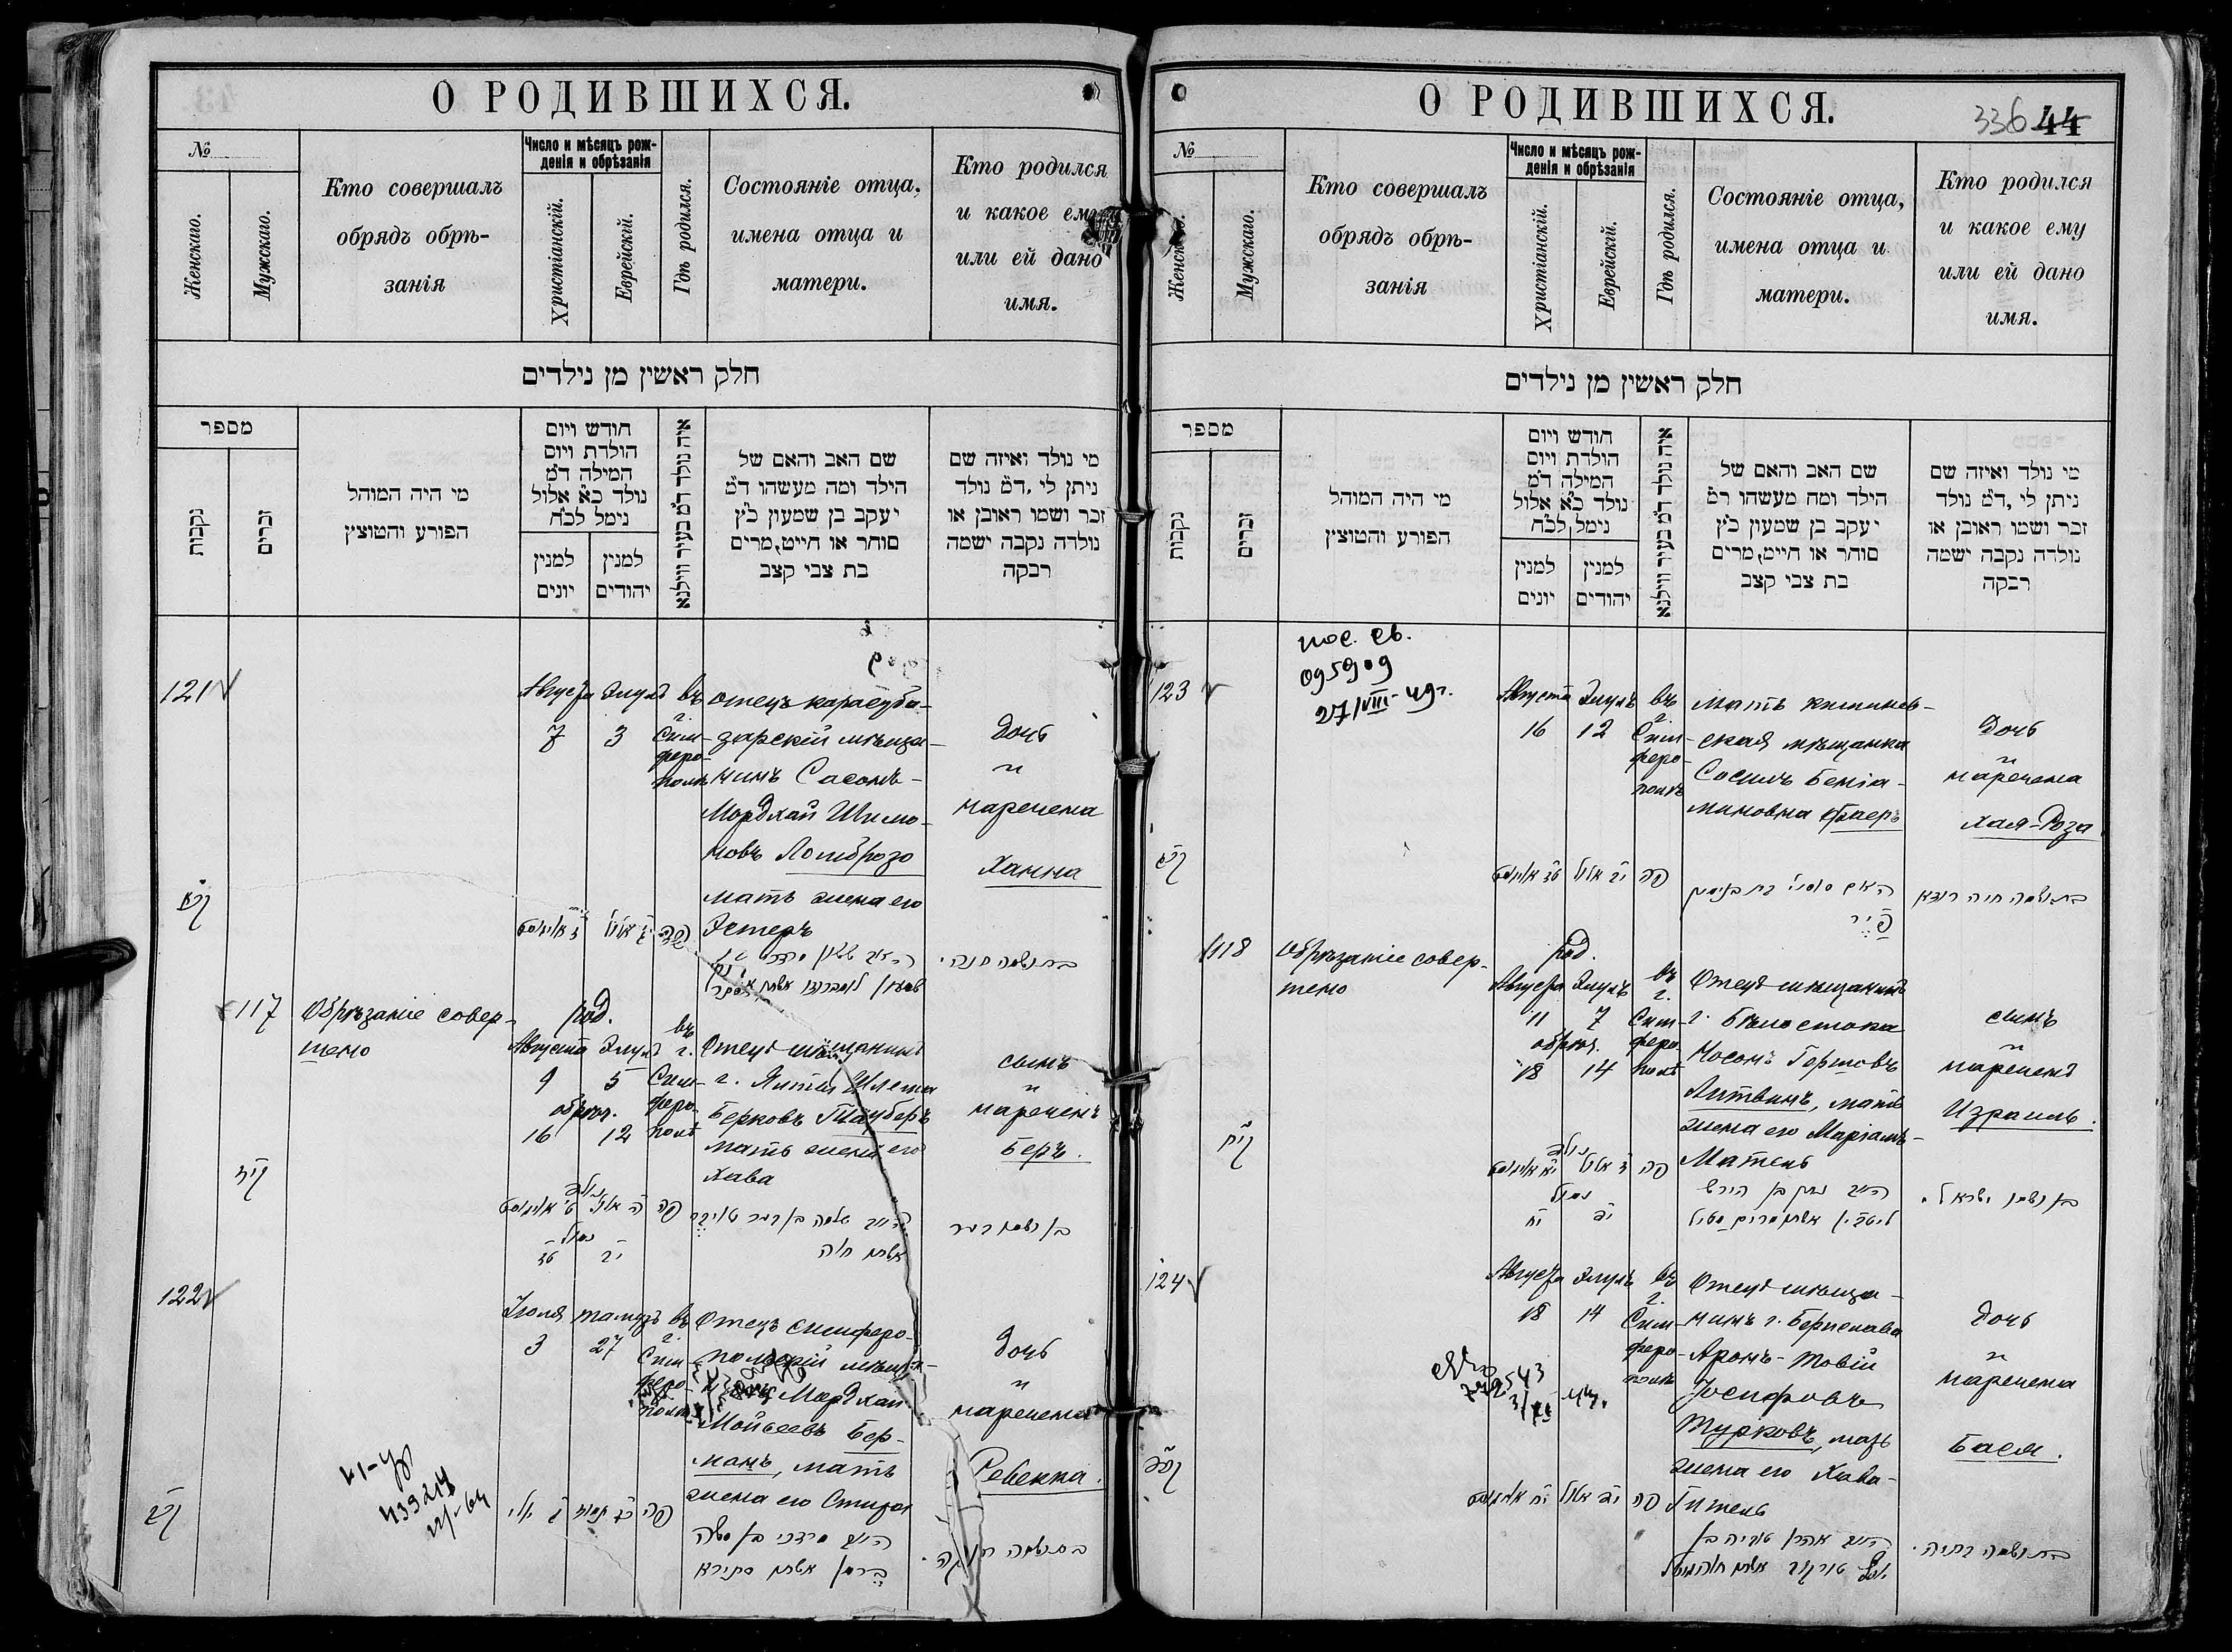 О РОДИВШИХСЯ.
№
Женскаго.
Мужскаго.
Кто совершалъ
обрядъ обрѣ-
занія
Число и мѣсяцъ рож-
денія и обрѣзанія
Христіанскій.
Еврейскій.
Гдѣ родился.
Состояніе отца,
имена отца и
матери.
Кто родился
и какое ему
или ей дано
имя.
חלק ראשין מן נילדים
מספר
נקבות
זכרים
מי היה המוהל
הפורע והטוצץ
חודש ויום
הולדת ויום
המילה ד״מ
נולד כ״א אלול
נימל לכ״ח
למנין
יונים
למנין
יהודים
איה נולד ד״מ בעיר ווילנא
שם האב והאם של
הילד ומה מעשהו ד״מ
יעקב בן שמעון כ״ץ
סוחר או חייט, מרים
בת צבי קצב
מי נולד ואיזה שם
ניתן לי, ד״מ נולד
זכר ושמו ראובן או
נולדה נקבה ישמה
רבקה
121
Августа Элулъ въ
7 3 г. Сим-
феро-
полѣ
отецъ карасуба-
зарскій мѣща-
нинъ Сасонъ-
Мордхай Шимо-
новъ Ломброзо
мать жена его
Эстеръ
Дочь
наречена
Ханна
בת ושמה חנה.
117
Обрѣзаніе совер-
шено
род.
Августа Элулъ въ г.
9 5 Сим-
обрѣз. феро-
16 12 полѣ
Отецъ мѣщанинъ
г. Ялты Шлема
Берковъ Тауберъ
мать жена его
Хава
сынъ
нареченъ
Беръ.
אשתו חוה
122
Іюля Тамузъ въ
3 27 г. Сим-
феро-
полѣ
Отецъ симферо-
польскій мѣща-
нинъ Мордхай
Мойсеевъ Бер-
манъ, мать
жена его Стира
Дочь
наречена
Ребекка.
О РОДИВШИХСЯ.
336 44
№
Женскаго.
Мужскаго.
Кто совершалъ
обрядъ обрѣ-
занія
Число и мѣсяцъ рож-
денія и обрѣзанія
Христіанскій.
Еврейскій.
Гдѣ родился.
Состояніе отца,
имена отца и
матери.
Кто родился
и какое ему
или ей дано
имя.
חלק ראשין מן נילדים
מספר
נקבות
זכרים
מי היה המוהל
הפורע והטוצץ
חודש ויום
הולדת ויום
המילה ד״מ
נולד כ״א אלול
נימל לכ״ח
למנין
יונים
למנין
יהודים
איה נולד ד״מ בעיר ווילנא
שם האב והאם של
הילד ומה מעשהו ד״מ
יעקב בן שמעון כ״ץ
סוחר או חייט, מרים
בת צבי קצב
מי נולד ואיזה שם
ניתן לי, ד״מ נולד
זכר ושמו ראובן או
נולדה נקבה ישמה
רבקה
пов. св.
095909
27/VIII-49г.
123
Августа Элулъ въ
16 12 г. Сим-
феро-
полѣ
Мать кишинев-
ская мѣщанка
Беніа-
миновна
Дочь
наречена
Хая-Роза
בת ושמה חיה רוזא
118
Обрѣзаніе совер-
шено
род.
Августа Элулъ въ г.
11 7 Сим-
обрѣз. феро-
18 14 полѣ
Отецъ мѣщанинъ
г. Бѣлостока
Носонъ Гершовъ
Литвинъ, мать
жена его Маріамъ-
Матель
сынъ
нареченъ
Израиль.
בן ושמו ישראל.
124
Августа Элулъ въ
18 14 г. Сим-
феро-
полѣ
Отецъ мѣща-
нинъ г. Берислава
Аронъ-Товій
Іосифовъ
Турковъ, мать
жена его Хава-
Гитель
Дочь
наречена
Бася.
בת ושמה בתיה.